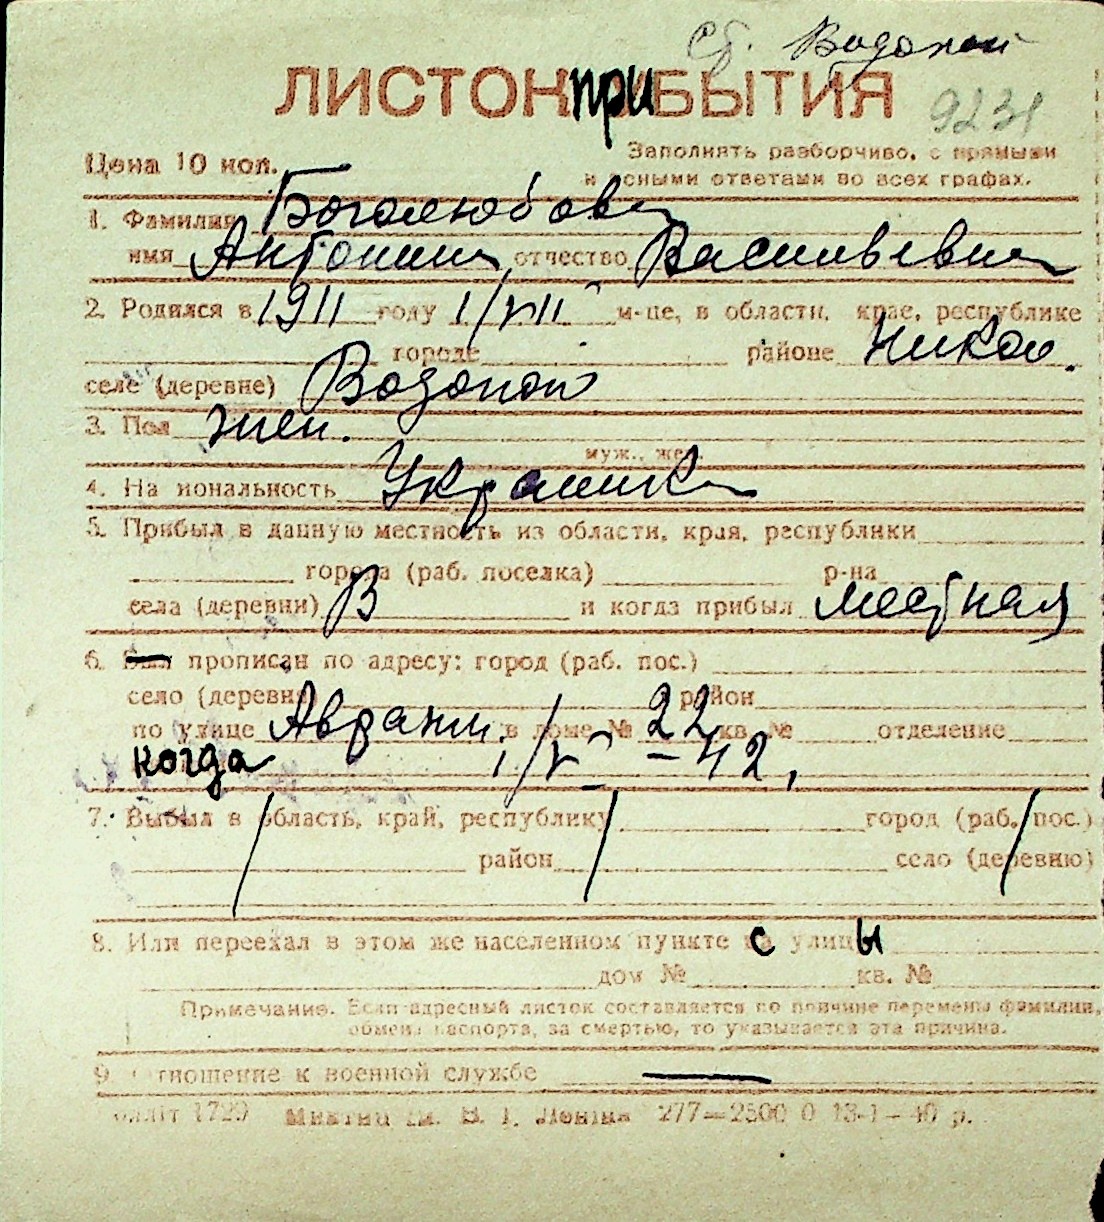 Ст. Водопой
ЛИСТОК ПРИБЫТИЯ
9231
Цена 10 коп.
Заполнять разборчиво, с прямыми
и ясными ответами во всех графах.
1. Фамилия Боголюбова
имя Антонина отчество Васильевна
2. Родился в 1911 году 1/VII м-це, в области, крае, республике
городе районе Никол.
селе (деревне) Водопой
3. Пол жен.
муж., жен.
4. Национальность Украинка
5. Прибыл в данную местность из области, края, республики
города (раб. поселка) р-на
села (деревни) В и когда прибыл местная
6. Был прописан по адресу: город (раб. пос.)
село (деревня) район
по улице в доме № 22 кв. № отделение
когда 1/V - 42,
7. Выбыл в область, край, республику город (раб. пос.)
район село (деревню)
8. Или переехал в этом же населенном пункте с улицы
дом № кв. №
Примечание. Если адресный листок составляется по причине перемены фамилии,
обмена паспорта, за смертью, то указывается эта причина.
9. Отношение к военной службе —
1729 В. І. Леніна 277—2500 0 13-1-40 р.